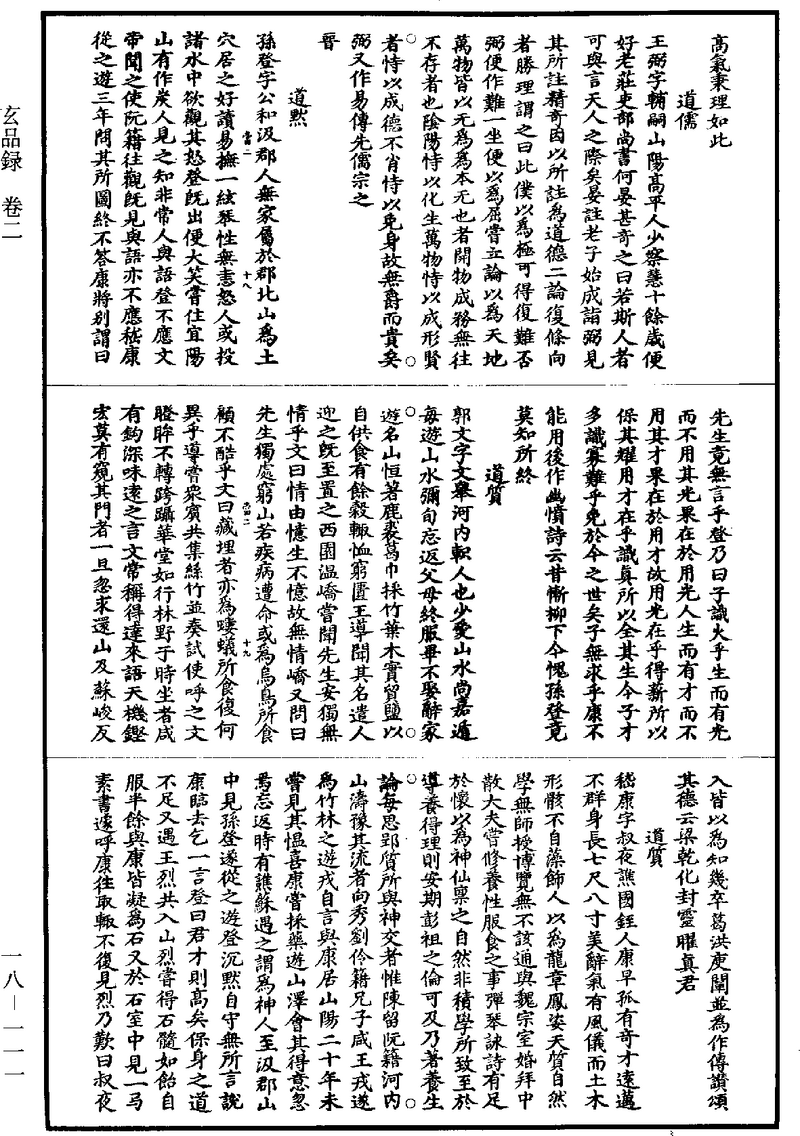 高氣秉理如此
道儒
王弼字輔嗣山陽高平人少察慧十餘歲便
好老莊吏部尚書何晏甚奇之曰若斯人者
可與言天人之際矣晏註老子始成詣弼見
其所註精奇因以所註為道德二論復條向
者勝理謂之曰此僕以為極可得復難否
弼便作難一坐便以為屈嘗立論以為天地
萬物皆以无為為本无也者開物成務無往
不存者也陰陽恃以化生萬物恃以成形賢
者恃以成德不肖恃以免身故無爵而貴矣
弼又作易傳先儒宗之
晉
道默
孫登字公和汲郡人無家屬於郡北山為土
十八
穴居之好讀易撫一絃琴性無恚怒人或投
諸水中欲觀其怒登旣出便大笑嘗住宜陽
山有作炭人見之知非常人與語登不應文
帝聞之使阮籍往觀旣見與語亦不應嵇康
從之遊三年問其所圖終不答康將別謂曰
先生竟無言乎登乃曰子識火乎生而有光
而不用其光果在於用光人生而有才而不
用其才果在於用才故用光在乎得薪所以
保其耀用才在乎識真所以全其生今子才
多識寡難乎免於今之世矣子無求乎康不
能用後作幽憤詩云昔慚柳下今愧孫登竟
莫知所終
道質
郭文字文舉河內軹人也少愛山水尚嘉遁
每遊山水彌旬忘返父母終服畢不娶辭家
遊名山恒著鹿裘葛巾採竹葉木實貿鹽以
自供食有餘穀輒恤窮匱王導聞其名遣人
迎之旣至置之西園溫嶠嘗聞先生安獨無
情乎文曰情由憶生不憶故無情嶠又問曰
先生獨處窮山若疾病遭命或為烏鳥所食
十九
顧不酷乎文曰藏埋者亦為螻蟻所食復何
異乎導嘗衆賓共集絲竹並奏試使呼之文
瞪眸不轉跨躡華堂如行林野于時坐者咸
有鉤深味遠之言文常稱得達來語天機鏗
宏莫有窺其門者一旦忽求還山及蘇峻反
入皆以為知幾卒葛洪庾闡並為作傳讚頌
其德云梁乾化封靈曜真君
道質
嵇康字叔夜譙國銍人康早孤有奇才遠邁
不群身長七尺八寸美辭氣有風儀而土木
形骸不自藻飾人以為龍章鳳姿天質自然
學無師授博覽無不該通與魏宗室婚拜中
散大夫嘗修養性服食之事彈琴詠詩有足
於懷以為神仙稟之自然非積學所致至於
導養得理則安期彭祖之倫可及乃著養生
論每思郢質所與神交者惟陳留阮籍河內
山濤豫其流者向秀劉伶籍兄子咸王戎遂
為竹林之遊戎自言與康居山陽二十年未
嘗見其慍喜康嘗採藥遊山澤會其得意忽
焉忘返時有樵蘇遇之謂為神人至汲郡山
中見孫登遂從之遊登沉默自守無所言說
康臨去乞一言登曰君才則高矣保身之道
不足又遇王烈共入山烈嘗得石髓如飴自
服半餘與康皆凝為石又於石室中見一卷
素書遽呼康往取輒不復見烈乃歎曰叔夜
玄品録　卷二
一八—一一一